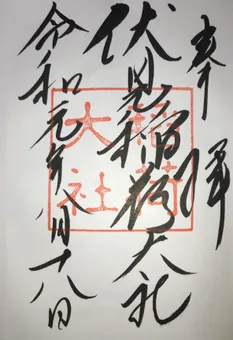 奉拝
伏見稲荷大社
令和元年八月十八日
稲荷大社